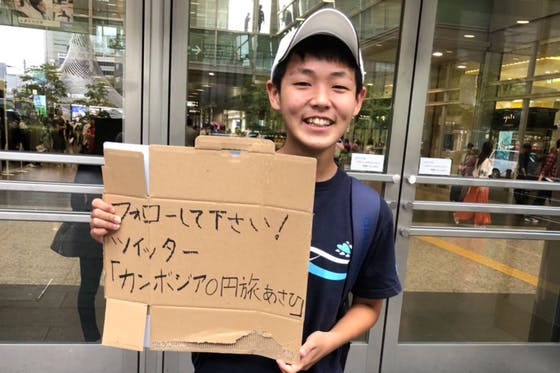 フォローして下さい!
ツイッター
「カンボジア0円旅あさひ」